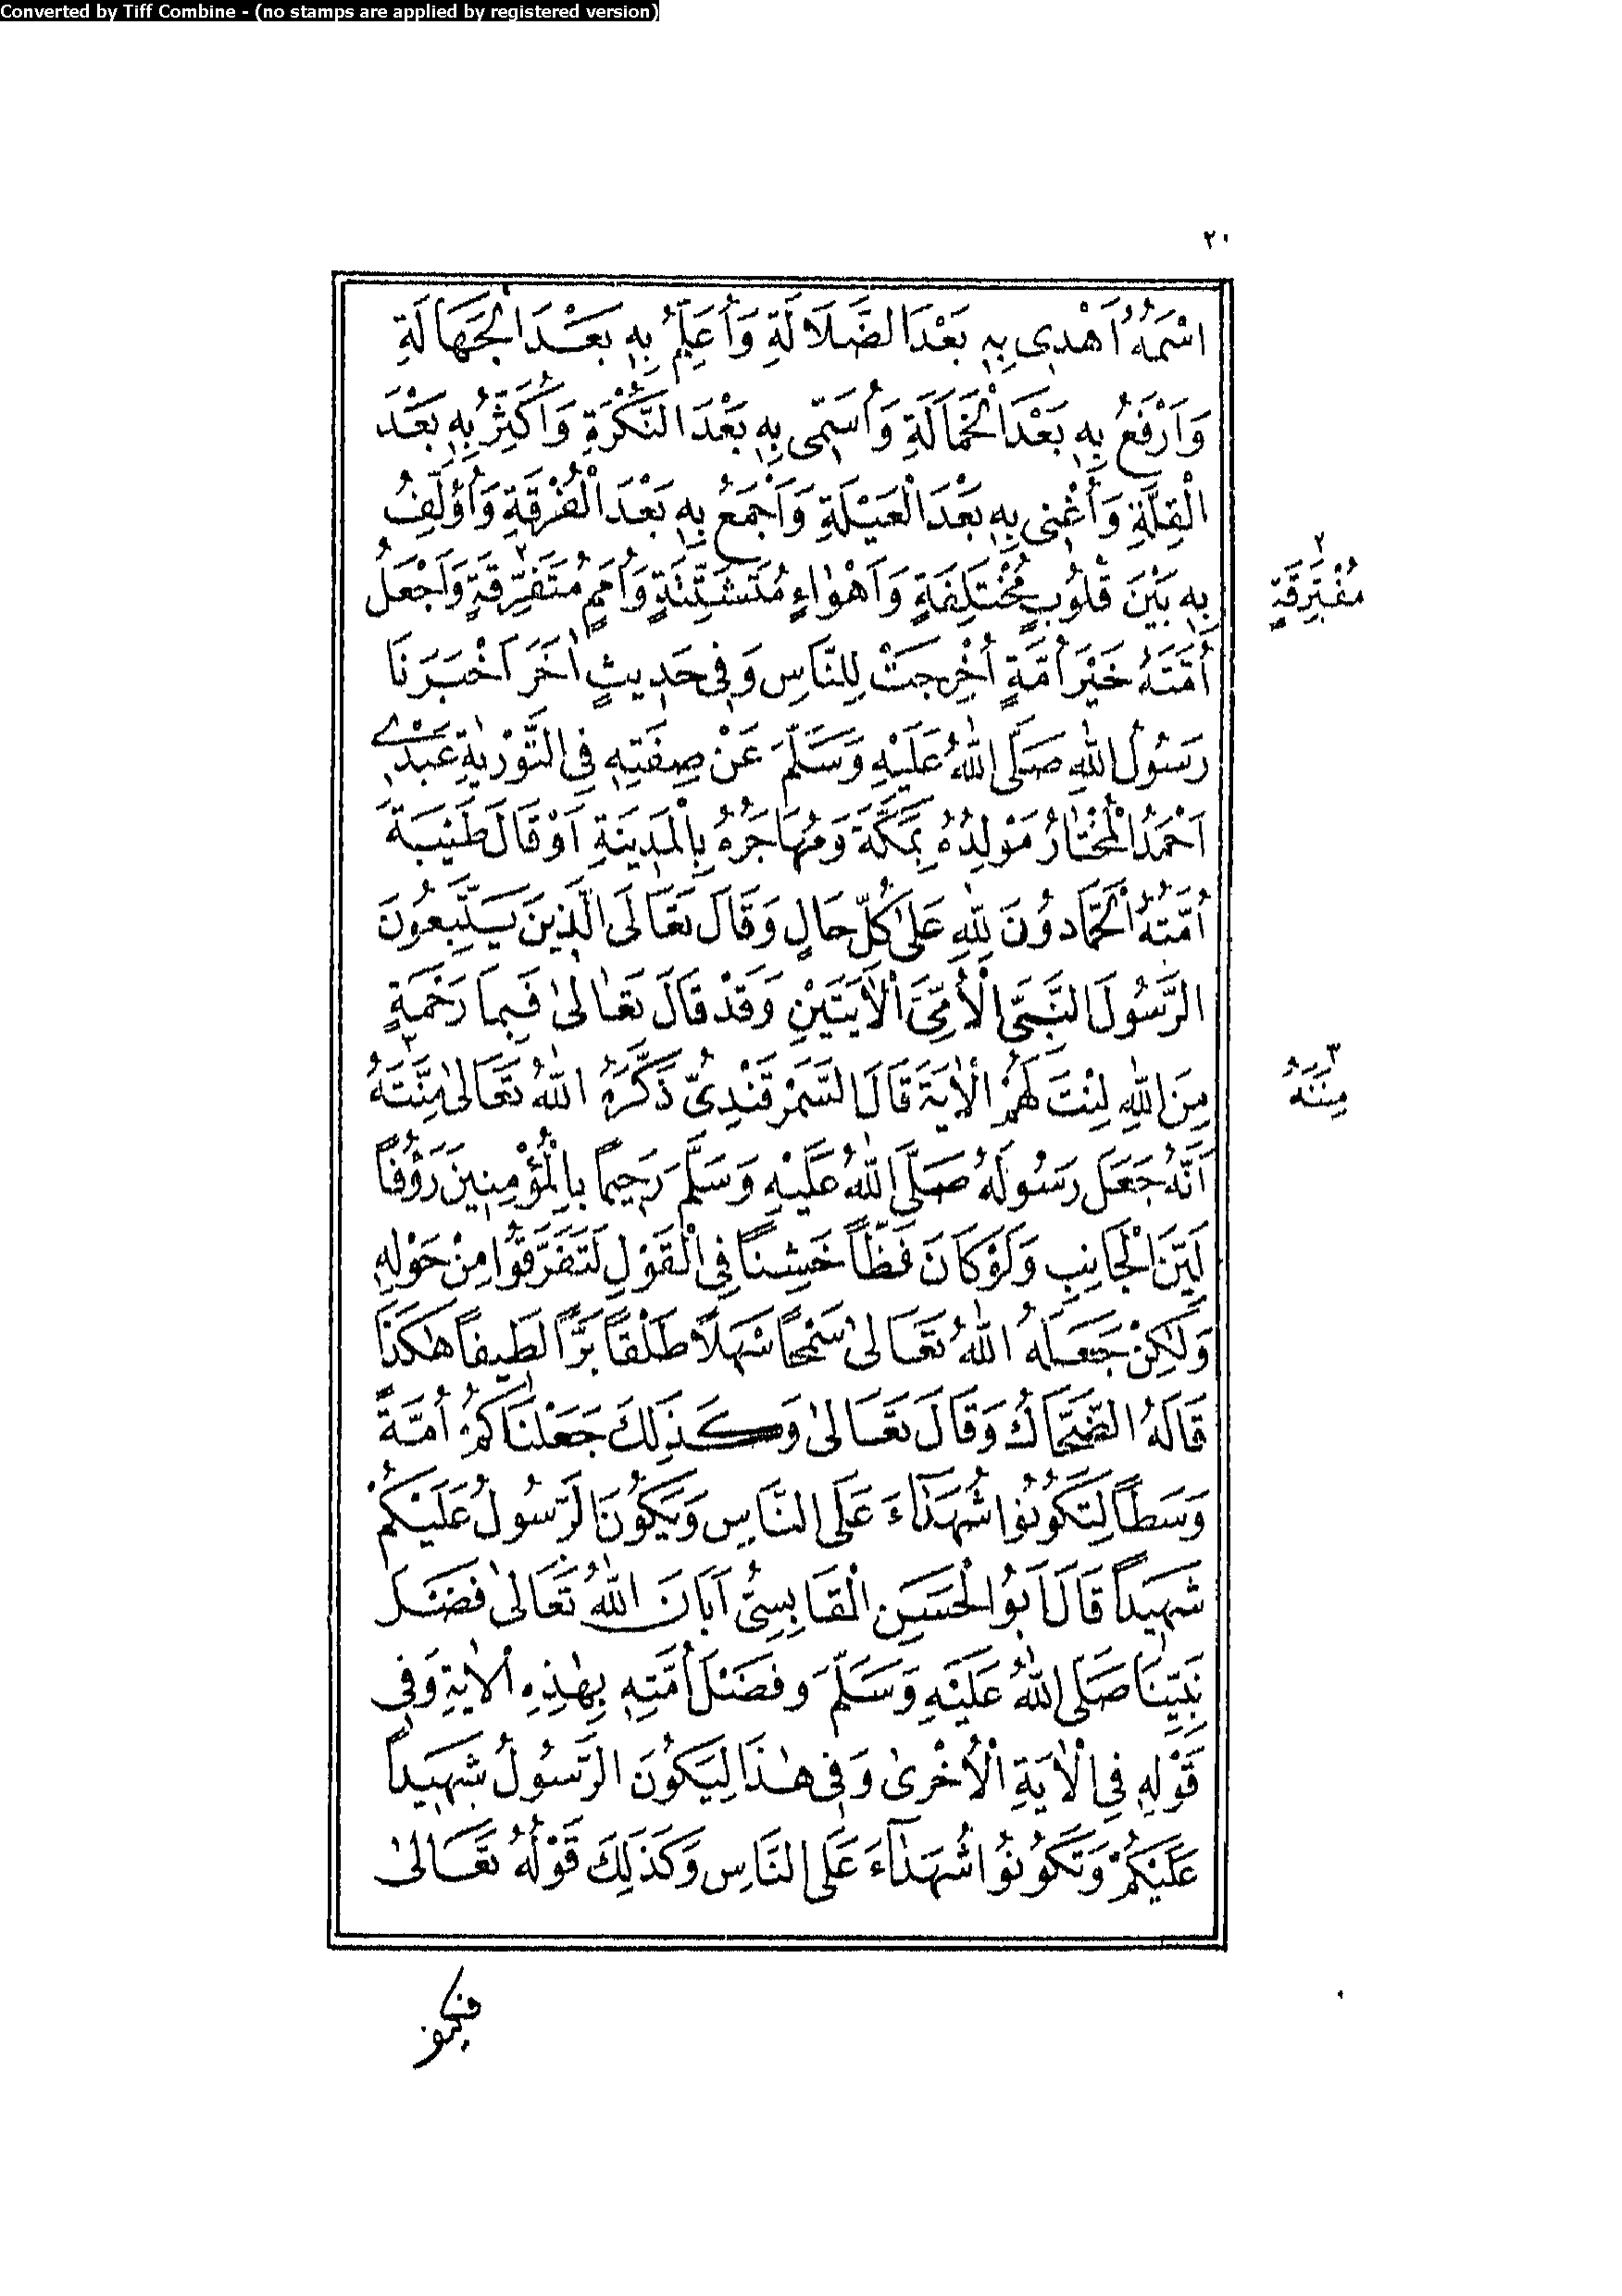 Converted by Tiff Combine - (no stamps are applied by registered version)
٢٠
اسْمُهُ اَهْدِى بِهِ بَعْدَ الضَّلَالَةِ وَأُعَلِّمُ بِهِ بَعْدَ الْجَهَالَةِ
وَاَرْفَعُ بِهِ بَعْدَ الْخَمَالَةِ وَأُسَمِّى بِهِ بَعْدَ النَّكْرَةِ وَأُكَثِّرُ بِهِ بَعْدَ
الْقِلَّةِ وَأُغْنِى بِهِ بَعْدَ الْعَيْلَةِ وَاَجْمَعُ بِهِ بَعْدَ الْفُرْقَةِ وَأُؤَلِّفُ
بِهِ بَيْنَ قُلُوبٍ مُخْتَلِفَةٍ وَاَهْوَاءٍ مُتَشَتِّتَةٍ وَأُمَمٍ مُتَفَرِّقَةٍ ٢ وَاَجْعَلُ
٢ مُفْتَرِقَةٍ
أُمَّتَهُ خَيْرَ أُمَّةٍ أُخْرِجَتْ لِلنَّاسِ وَفِى حَدِيثٍ اٰخَرَ اَخْبَرَنَا
رَسُولُ اللّٰهِ صَلَّى اللّٰهُ عَلَيْهِ وَسَلَّمَ عَنْ صِفَتِهِ فِى التَّوْرٰيةِ عَبْدِى
اَحْمَدُ الْمُخْتَارُ مَوْلِدُهُ بِمَكَّةَ وَمُهَاجَرُهُ بِالْمَدِينَةِ اَوْ قَالَ طَيْبَةَ
أُمَّتُهُ الْحَمَّادُونَ لِلّٰهِ عَلٰى كُلِّ حَالٍ وَقَالَ تَعَالَى الَّذِينَ يَتَّبِعُونَ
الرَّسُولَ النَّبِىَّ الْأُمِّىَّ الْاٰيَتَيْنِ وَقَدْ قَالَ تَعَالٰى فَبِمَا رَحْمَةٍ
مِنَ اللّٰهِ لِنْتَ لَهُمْ الْاٰيَةَ قَالَ السَّمَرْقَنْدِىُّ ذَكَّرَهُ اللّٰهُ تَعَالٰى مِنَّتَهُ ٣
٣ مِنَنَهُ
اَنَّهُ جَعَلَ رَسُولَهُ صَلَّى اللّٰهُ عَلَيْهِ وَسَلَّمَ رَحِيمًا بِالْمُؤْمِنِينَ رَؤُفًا
لَيِّنَ الْجَانِبِ وَلَوْ كَانَ فَظًّا خَشِنًا فِى الْقَوْلِ لَتَفَرَّقُوا مِنْ حَوْلِهِ
وَلٰكِنْ جَعَلَهُ اللّٰهُ تَعَالٰى سَمْحًا سَهْلًا طَلْقًا بَرًّا لَطِيفًا هٰكَذَا
قَالَهُ الضَّحَّاكُ وَقَالَ تَعَالٰى وَكَذٰلِكَ جَعَلْنَاكُمْ أُمَّةً
وَسَطًا لِتَكُونُوا شُهَدَٓاءَ عَلَى النَّاسِ وَيَكُونَ الرَّسُولُ عَلَيْكُمْ
شَهِيدًا قَالَ اَبُو الْحَسَنِ الْقَابِسِىُّ اَبَانَ اللّٰهُ تَعَالٰى فَضْلَ
نَبِيِّنَا صَلَّى اللّٰهُ عَلَيْهِ وَسَلَّمَ وَفَضْلَ أُمَّتِهِ بِهٰذِهِ الْاٰيَةِ وَفِى
قَوْلِهِ فِى الْاٰيَةِ الْأُخْرٰى وَفِى هٰذَا لِيَكُونَ الرَّسُولُ شَهِيدًا
عَلَيْكُمْ وَتَكُونُوا شُهَدَٓاءَ عَلَى النَّاسِ وَكَذٰلِكَ قَوْلُهُ تَعَالٰى
فكيف